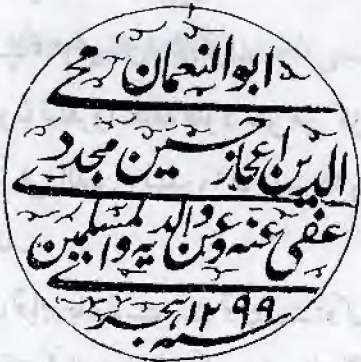 ابو النعمان محی
الدین اعجاز حسین مجدد
عفی عنه وعن والدیه والمسلمین
سنه ۱۲۹۹ هجری